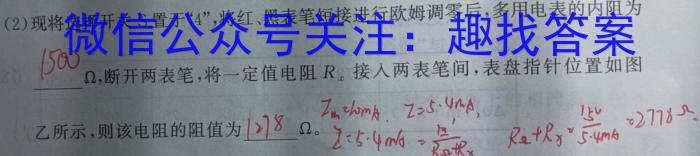 (2)现将选择开关置于"4",将红、黑表笔短接进行欧姆调零后,多用电表的内阻为
微信公众号关注:趣找答案
1500 Ω,断开两表笔,将一定值电阻 Rₓ 接入两表笔间,表盘指针位置如图
乙所示,则该电阻的阻值为 1278 Ω。
I=5.4mA
I=5.4mA =
=2778Ω